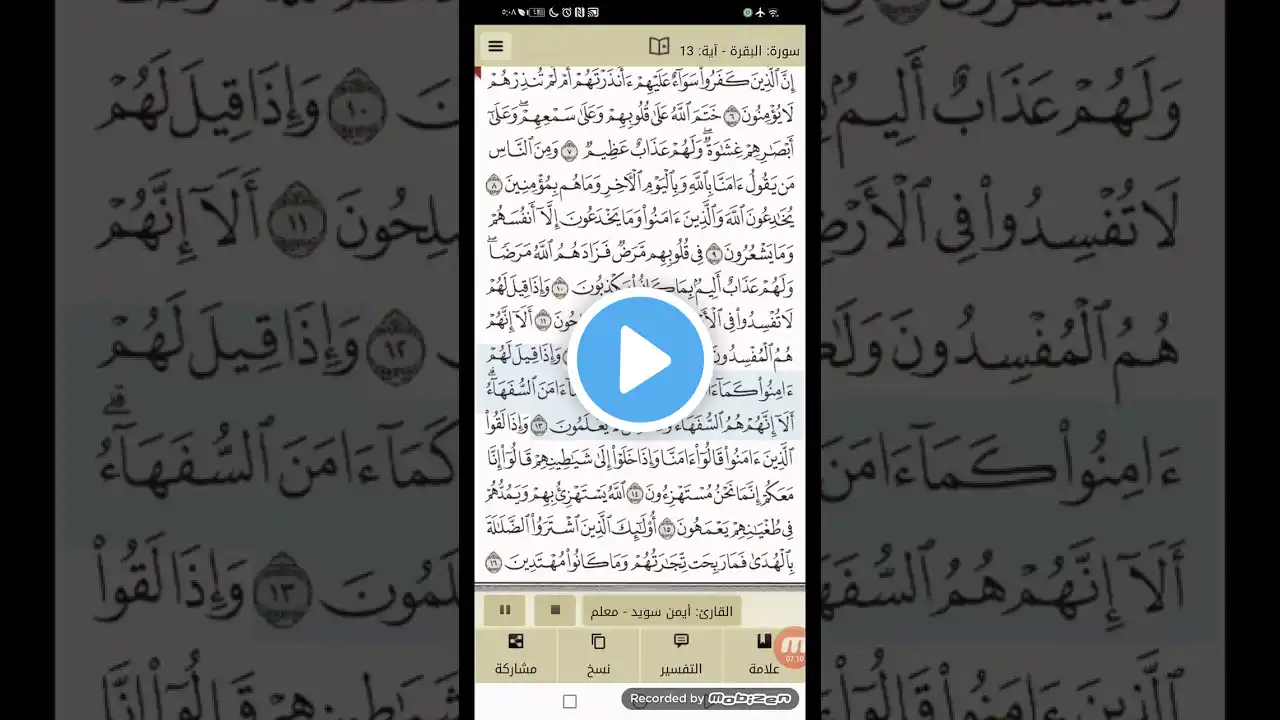 ٥:٠٨
سورة: البقرة - آية: 13
إِنَّ ٱلَّذِينَ كَفَرُوا۟ سَوَآءٌ عَلَيْهِمْ ءَأَنذَرْتَهُمْ أَمْ لَمْ تُنذِرْهُمْ
لَا يُؤْمِنُونَ ٦ خَتَمَ ٱللَّهُ عَلَىٰ قُلُوبِهِمْ وَعَلَىٰ سَمْعِهِمْ ۖ وَعَلَىٰٓ
أَبْصَٰرِهِمْ غِشَٰوَةٌ ۖ وَلَهُمْ عَذَابٌ عَظِيمٌ ٧ وَمِنَ ٱلنَّاسِ
مَن يَقُولُ ءَامَنَّا بِٱللَّهِ وَبِٱلْيَوْمِ ٱلْأَخِرِ وَمَا هُم بِمُؤْمِنِينَ ٨
يُخَٰدِعُونَ ٱللَّهَ وَٱلَّذِينَ ءَامَنُوا۟ وَمَا يَخْدَعُونَ إِلَّآ أَنفُسَهُمْ
وَمَا يَشْعُرُونَ ٩ فِى قُلُوبِهِم مَّرَضٌ فَزَادَهُمُ ٱللَّهُ مَرَضًا ۖ
وَلَهُمْ عَذَابٌ أَلِيمٌۢ بِمَا كَانُوا۟ يَكْذِبُونَ ١٠ وَإِذَا قِيلَ لَهُمْ
لَا تُفْسِدُوا۟ فِى ١١ أَلَآ إِنَّهُمْ
هُمُ ٱلْمُفْسِدُونَ وَإِذَا قِيلَ لَهُمْ
ءَامِنُوا۟ كَمَآ ءَامَنَ ٱلسُّفَهَآءُ ۗ
أَلَآ إِنَّهُمْ هُمُ ٱلسُّفَهَآءُ يَعْلَمُونَ ١٣ وَإِذَا لَقُوا۟
ٱلَّذِينَ ءَامَنُوا۟ قَالُوٓا۟ ءَامَنَّا وَإِذَا خَلَوْا۟ إِلَىٰ شَيَٰطِينِهِمْ قَالُوٓا۟ إِنَّا
مَعَكُمْ إِنَّمَا نَحْنُ مُسْتَهْزِءُونَ ١٤ ٱللَّهُ يَسْتَهْزِئُ بِهِمْ وَيَمُدُّهُمْ
فِى طُغْيَٰنِهِمْ يَعْمَهُونَ ١٥ أُو۟لَٰٓئِكَ ٱلَّذِينَ ٱشْتَرَوُا۟ ٱلضَّلَٰلَةَ
بِٱلْهُدَىٰ فَمَا رَبِحَت تِّجَٰرَتُهُمْ وَمَا كَانُوا۟ مُهْتَدِينَ ١٦
القارئ: أيمن سويد - معلم
علامة
التفسير
نسخ
مشاركة
07:10
Recorded by Mobizen